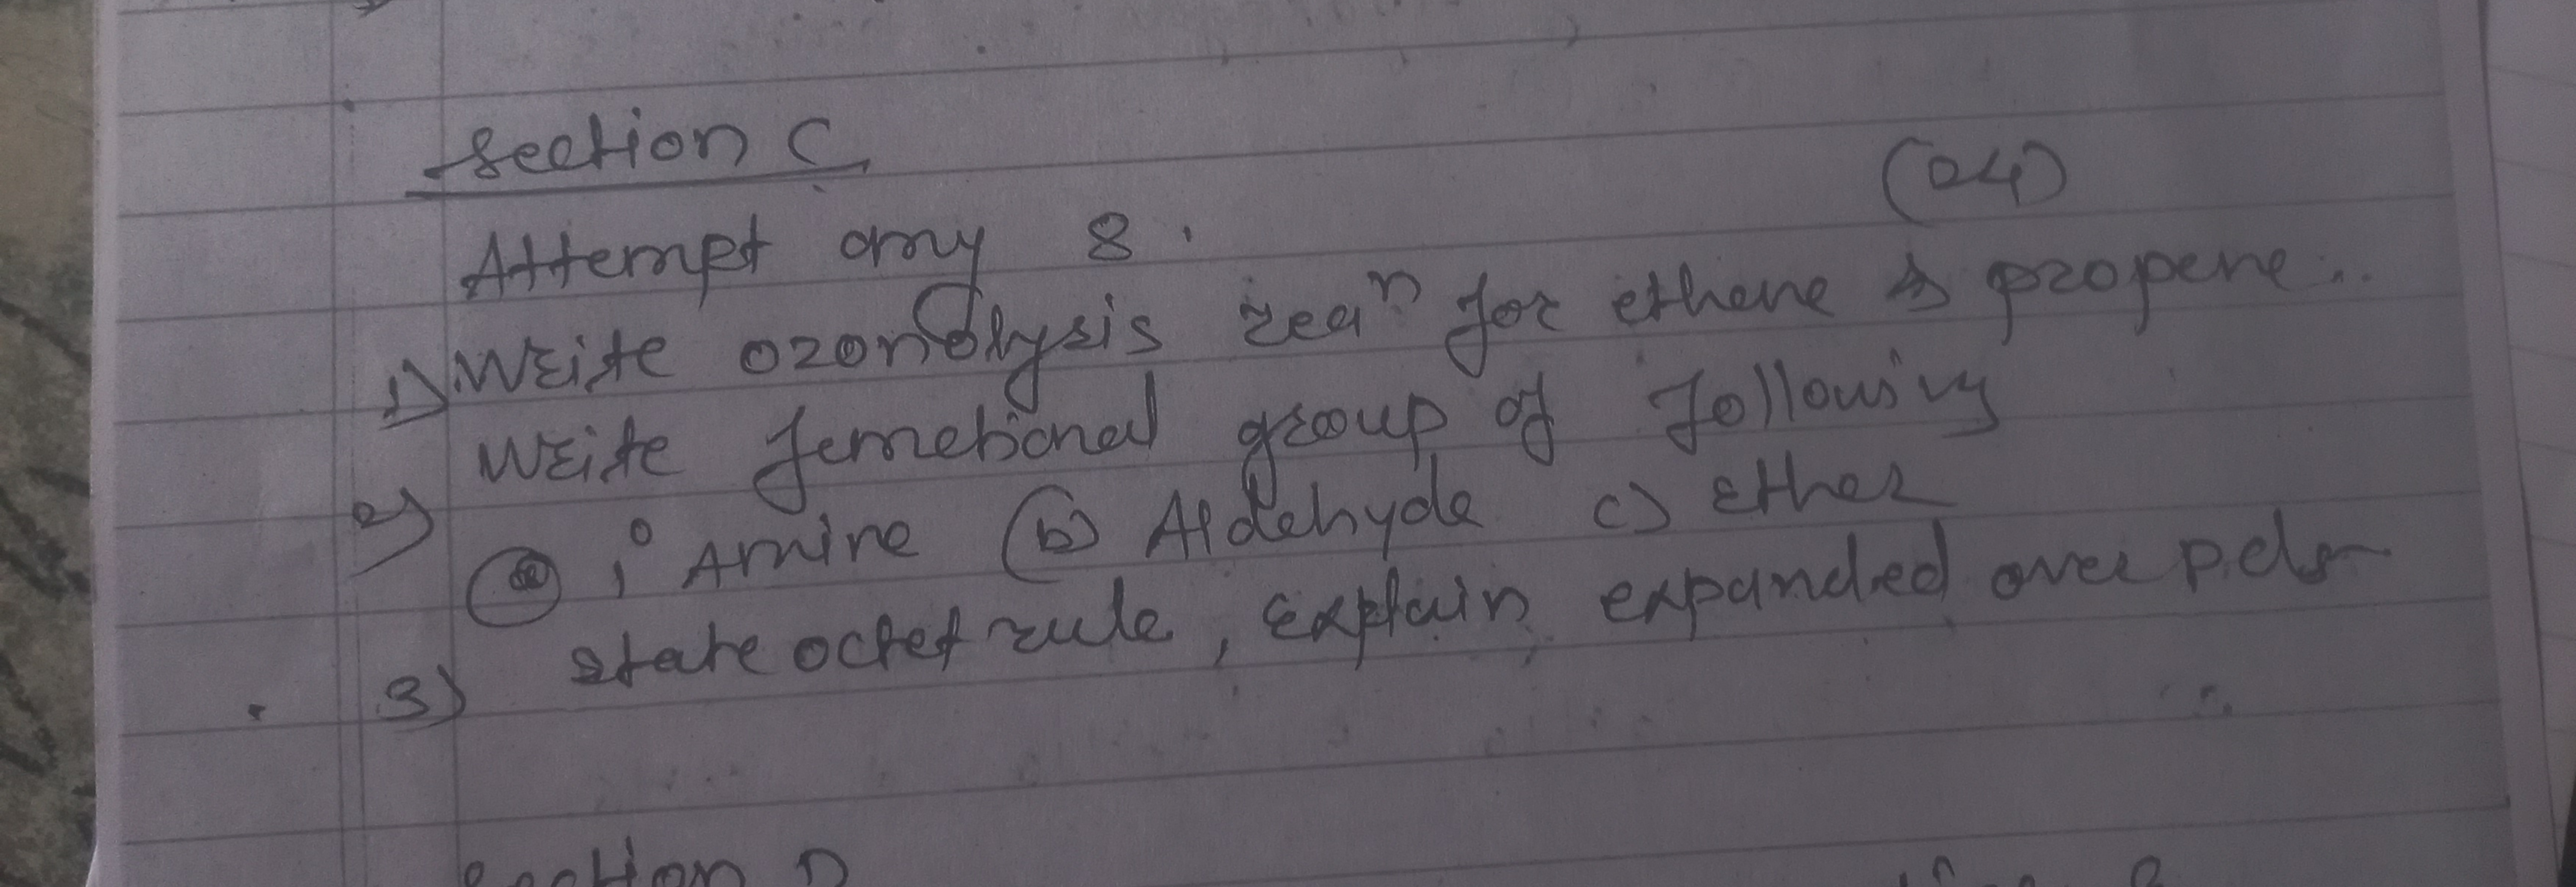 Section C
(04)
Attempt any 8.
1) Write ozonolysis reaⁿ for ethene & propene..
2) Write functional group of following
(a) 1° Amine (b) Aldehyde c) Ether
3) state octet rule, Explain expanded over
Section D